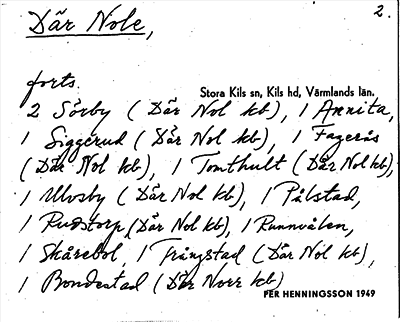 Där Nole,
2.
forts.
Stora Kils sn, Kils hd, Värmlands län.
2 Sörby (Där Nol kb), 1 Annita,
1 Siggerud (Där Nol kb), 1 Fagerås
(Där Nol kb), 1 Tomthult (Där Nol kb),
1 Ulvsby (Där Nol kb), 1 Pålstad,
1 Rudstorp (Där Nol kb), 1 Runnvålen,
1 Skårebol, 1 Frängstad (Där Nol kb),
1 Bondestad (Där Norr kb)
PER HENNINGSSON 1949